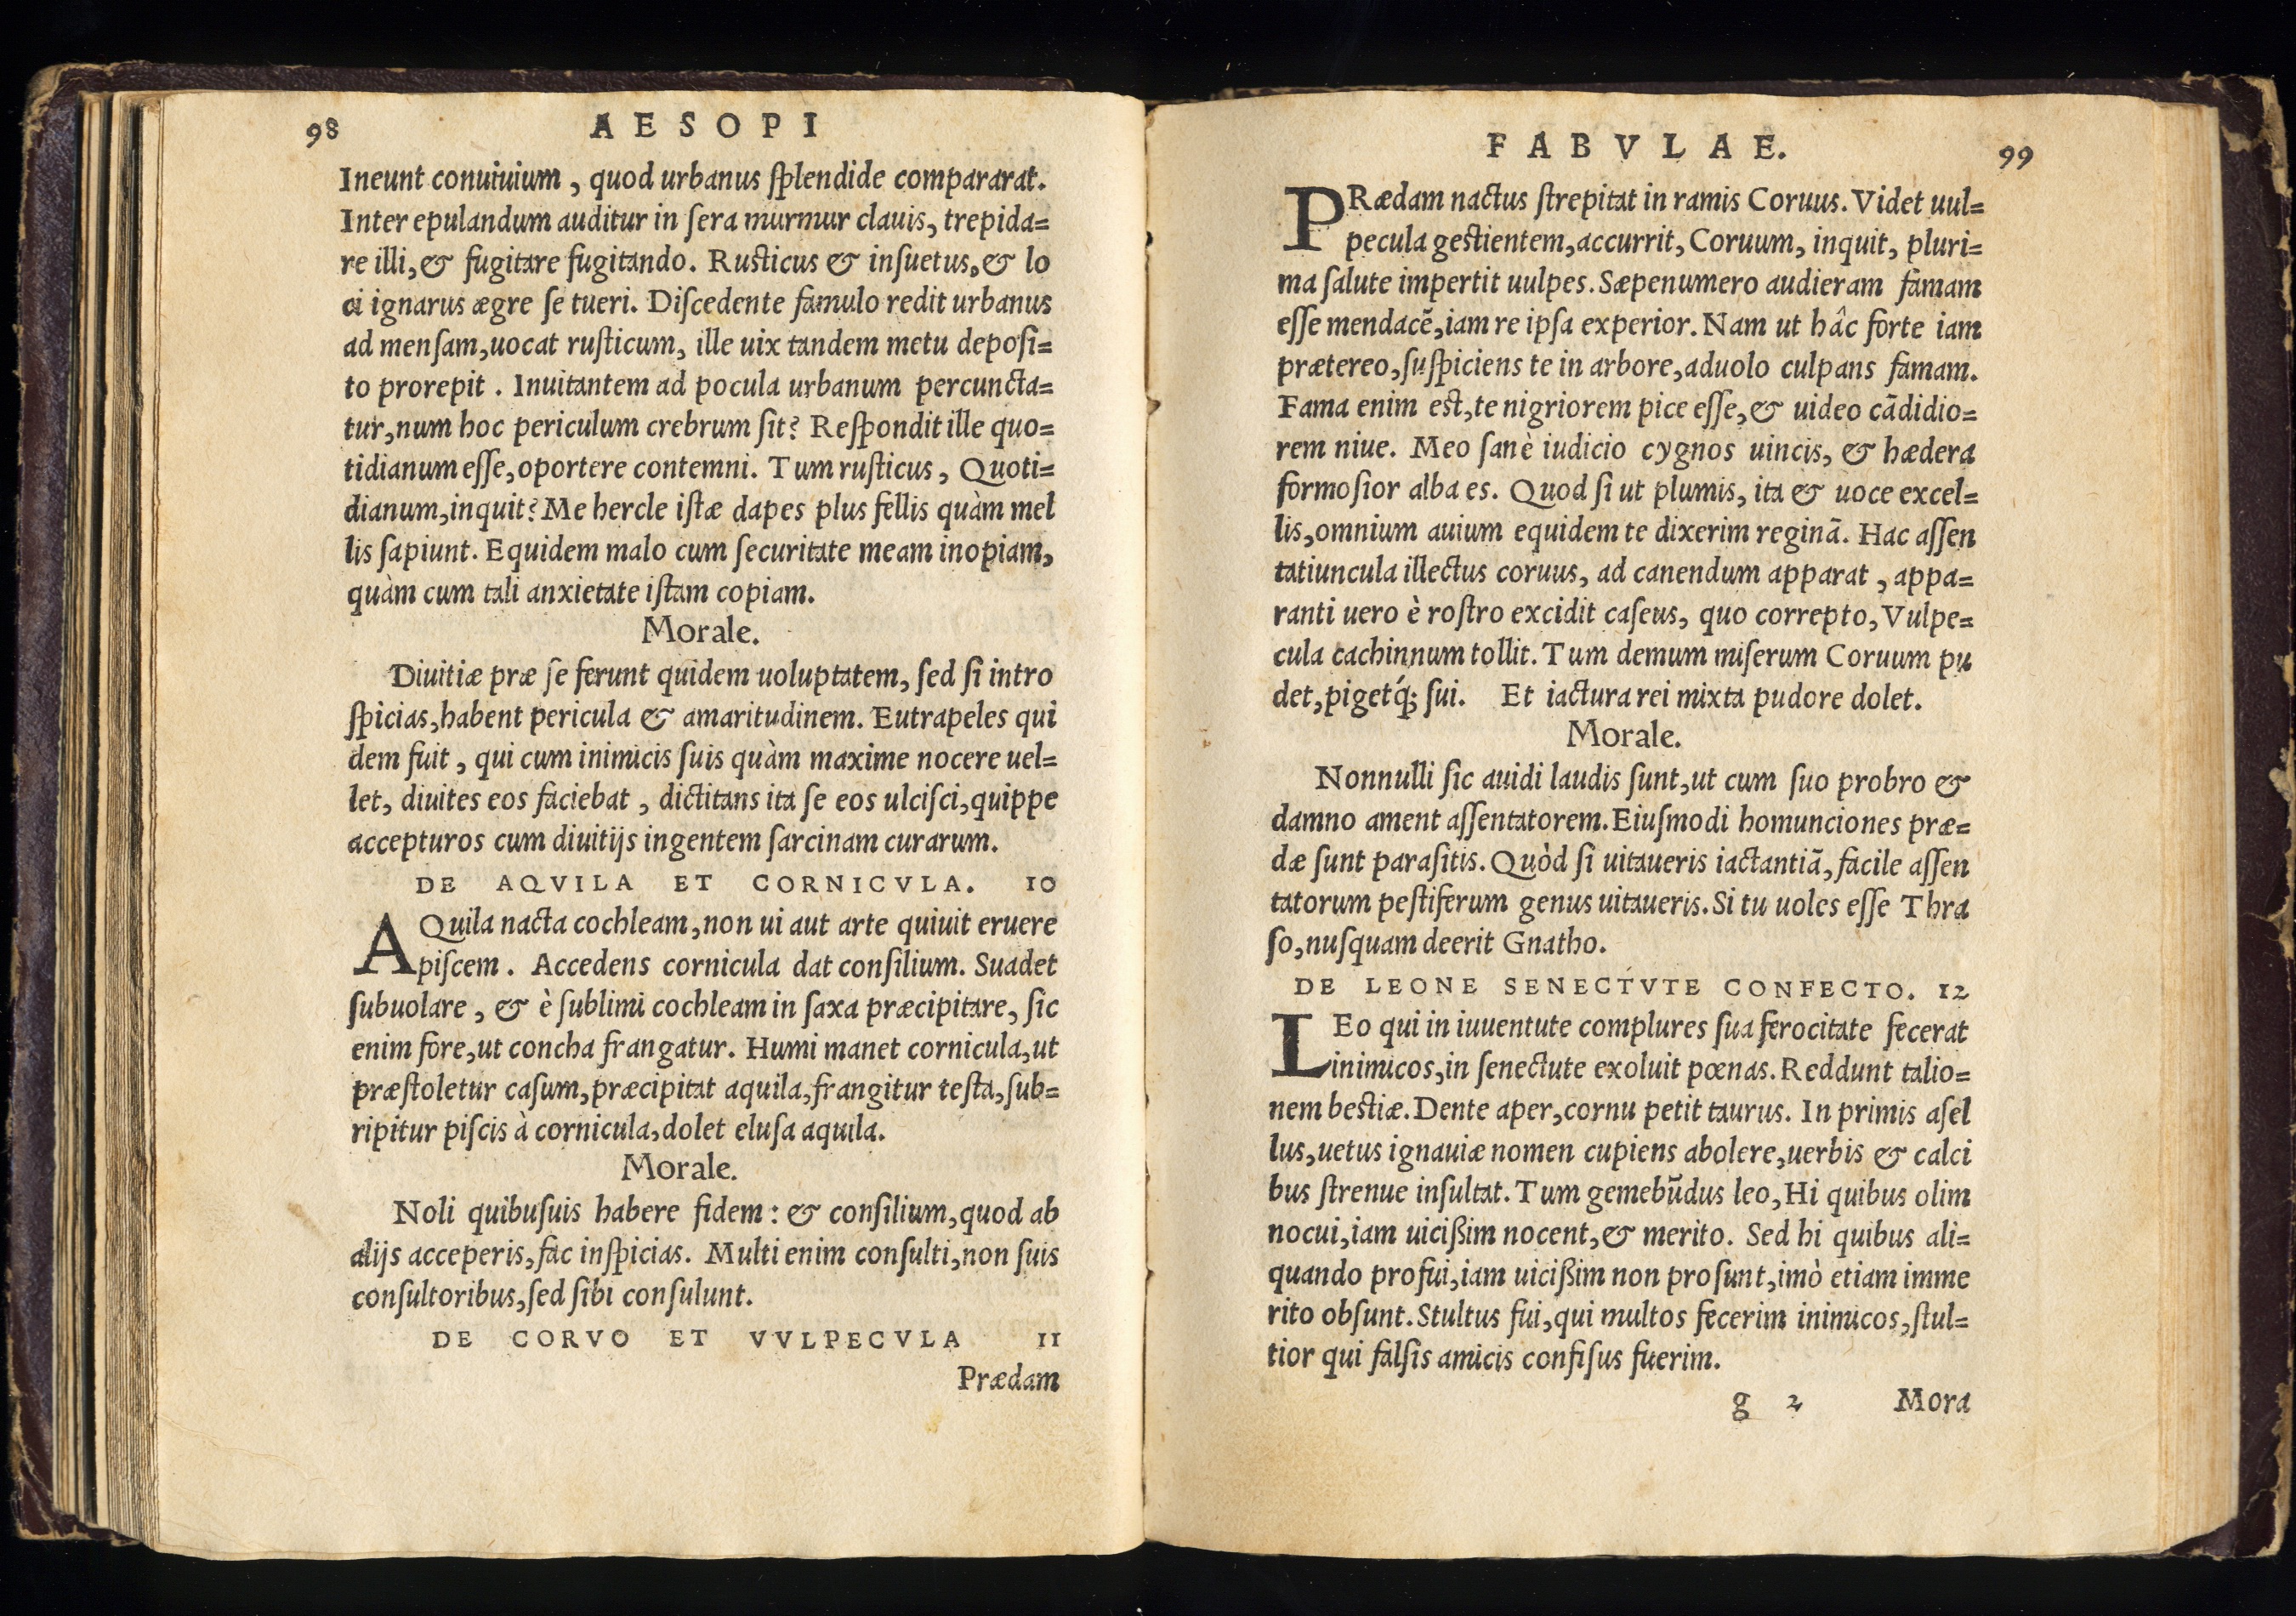 98 AESOPI
Ineunt conuiuium, quod urbanus ſplendide compararat.
Inter epulandum auditur in ſera murmur clauis, trepida=
re illi, & fugitare fugitando. Ruſticus & inſuetus, & lo
ci ignarus ægre ſe tueri. Diſcedente famulo redit urbanus
ad menſam, uocat ruſticum, ille uix tandem metu depoſi=
to prorepit. Inuitantem ad pocula urbanum percuncta=
tur, num hoc periculum crebrum ſit? Reſpondit ille quo=
tidianum eſſe, oportere contemni. Tum ruſticus, Quoti=
dianum, inquit? Me hercle iſtæ dapes plus fellis quàm mel
lis ſapiunt. Equidem malo cum ſecuritate meam inopiam,
quàm cum tali anxietate iſtam copiam.
Morale.
Diuitiæ præ ſe ferunt quidem uoluptatem, ſed ſi intro
ſpicias, habent pericula & amaritudinem. Eutrapeles qui
dem fuit, qui cum inimicis ſuis quàm maxime nocere uel=
let, diuites eos faciebat, dictitans ita ſe eos ulciſci, quippe
accepturos cum diuitijs ingentem ſarcinam curarum.
DE AQVILA ET CORNICVLA. 10
AQuila nacta cochleam, non ui aut arte quiuit eruere
piſcem. Accedens cornicula dat conſilium. Suadet
ſubuolare, & è ſublimi cochleam in ſaxa præcipitare, ſic
enim fore, ut concha frangatur. Humi manet cornicula, ut
præſtoletur caſum, præcipitat aquila, frangitur teſta, ſub=
ripitur piſcis à cornicula, dolet eluſa aquila.
Morale.
Noli quibuſuis habere fidem: & conſilium, quod ab
alijs acceperis, fac inſpicias. Multi enim conſulti, non ſuis
conſultoribus, ſed ſibi conſulunt.
DE CORVO ET VVLPECVLA 11
Prædam
FABVLAE. 99
PRædam nactus ſtrepitat in ramis Coruus. Videt uul=
pecula geſtientem, accurrit, Coruum, inquit, pluri=
ma ſalute impertit uulpes. Sæpenumero audieram famam
eſſe mendacẽ, iam re ipſa experior. Nam ut hâc forte iam
prætereo, ſuſpiciens te in arbore, aduolo culpans famam.
Fama enim eſt, te nigriorem pice eſſe, & uideo cãdidio=
rem niue. Meo ſanè iudicio cygnos uincis, & hædera
formoſior alba es. Quod ſi ut plumis, ita & uoce excel=
lis, omnium auium equidem te dixerim reginã. Hac aſſen
tatiuncula illectus coruus, ad canendum apparat, appa=
ranti uero è roſtro excidit caſeus, quo correpto, Vulpe=
cula cachinnum tollit. Tum demum miſerum Coruum pu
det, pigetq́; ſui. Et iactura rei mixta pudore dolet.
Morale.
Nonnulli ſic auidi laudis ſunt, ut cum ſuo probro &
damno ament aſſentatorem. Eiuſmodi homunciones præ=
dæ ſunt paraſitis. Quòd ſi uitaueris iactantiã, facile aſſen
tatorum peſtiferum genus uitaueris. Si tu uoles eſſe Thra
ſo, nuſquam deerit Gnatho.
DE LEONE SENECTV́TE CONFECTO. 12
LEo qui in iuuentute complures ſua ferocitate fecerat
inimicos, in ſenectute exoluit pœnas. Reddunt talio=
nem beſtiæ. Dente aper, cornu petit taurus. In primis aſel
lus, uetus ignauiæ nomen cupiens abolere, uerbis & calci
bus ſtrenue inſultat. Tum gemebũdus leo, Hi quibus olim
nocui, iam uiciſſim nocent, & merito. Sed hi quibus ali=
quando profui, iam uiciſſim non proſunt, imò etiam imme
rito obſunt. Stultus fui, qui multos fecerim inimicos, ſtul=
tior qui falſis amicis confiſus fuerim.
g 2 Mora